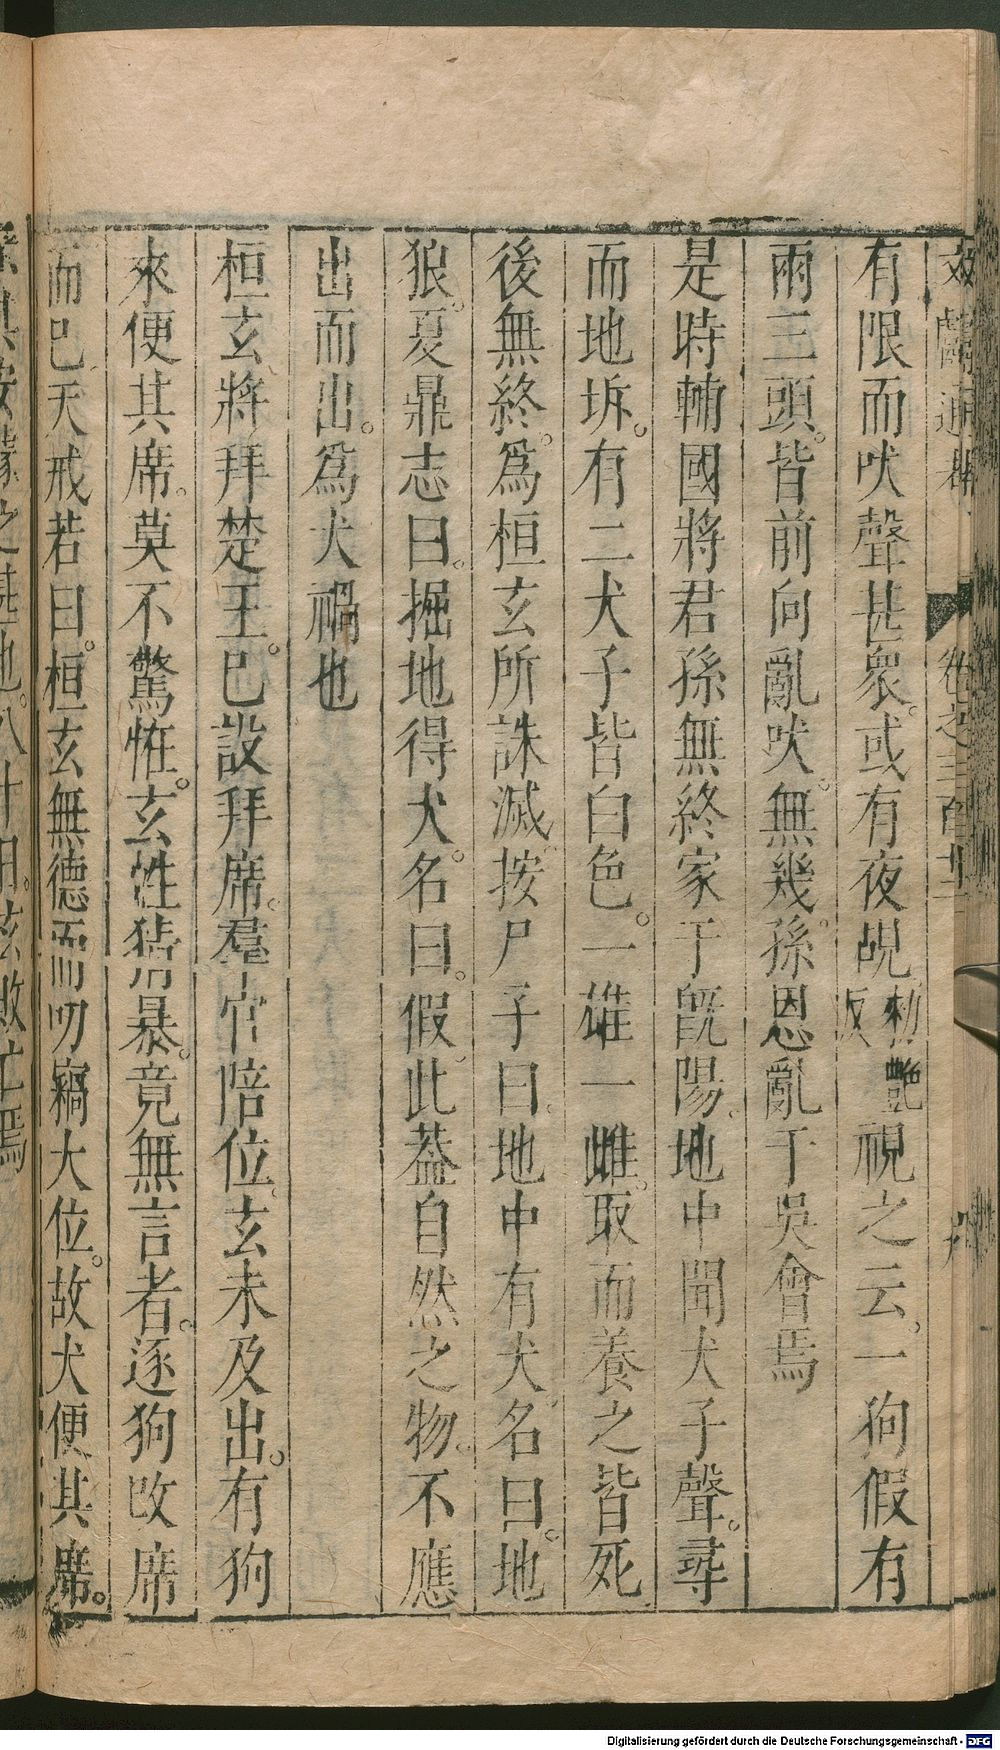 文獻通考 卷之三百十二
有限而吠聲甚衆。或有夜覘敕艷反視之云。一狗假有
兩三頭。皆前向亂吠。無幾。孫恩亂于吳會焉
是時輔國將君孫無終家于旣陽。地中聞犬子聲。尋
而地坼。有二犬子皆白色。一雄一雌。取而養之皆死
後無終。爲桓玄所誅滅。按尸子曰。地中有犬。名曰。地
狼。夏鼎志曰。掘地得犬。名曰。假。此葢自然之物。不應
出而出。爲犬禍也
桓玄將拜楚王。巳設拜席。羣官陪位。玄未及出。有狗
來便其席。莫不驚恠。玄性猜暴。竟無言者。逐狗改席
而巳天戒若曰。桓玄無德而叨竊大位。故犬便其席。
Digitalisierung gefördert durch die Deutsche Forschungsgemeinschaft - DFG